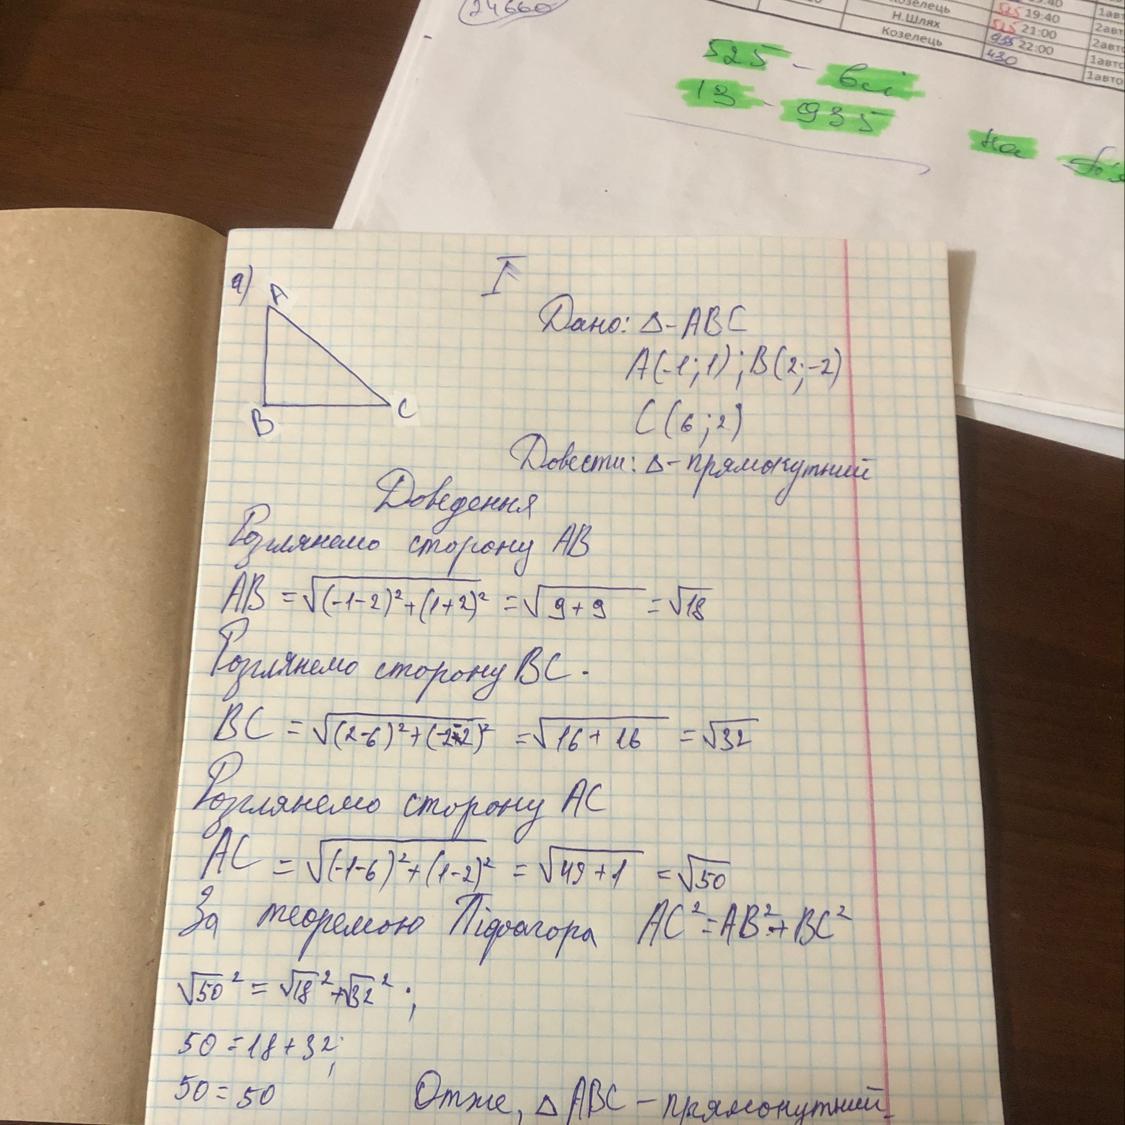 24660
Козелець
Н.Шлях
Козелець
19:40
525 19:40
525 21:00
935 22:00
430
1авто
2авто
2авто
1авто
1авто
525 - всі
13 - 935
На
I
а)
A
B
C
Дано: Δ-ABC
A(-1;1); B(2;-2)
C(6;2)
Довести: Δ-прямокутний
Доведення
Розглянемо сторону AB
AB = √(-1-2)²+(1+2)² = √9+9 = √18
Розглянемо сторону BC.
BC = √(2-6)²+(-2-2)² = √16+16 = √32
Розглянемо сторону AC
AC = √(-1-6)²+(1-2)² = √49+1 = √50
За теоремою Піфагора AC²=AB²+BC²
√50² = √18²+√32²;
50=18+32;
50=50 Отже, Δ ABC - прямокутний.